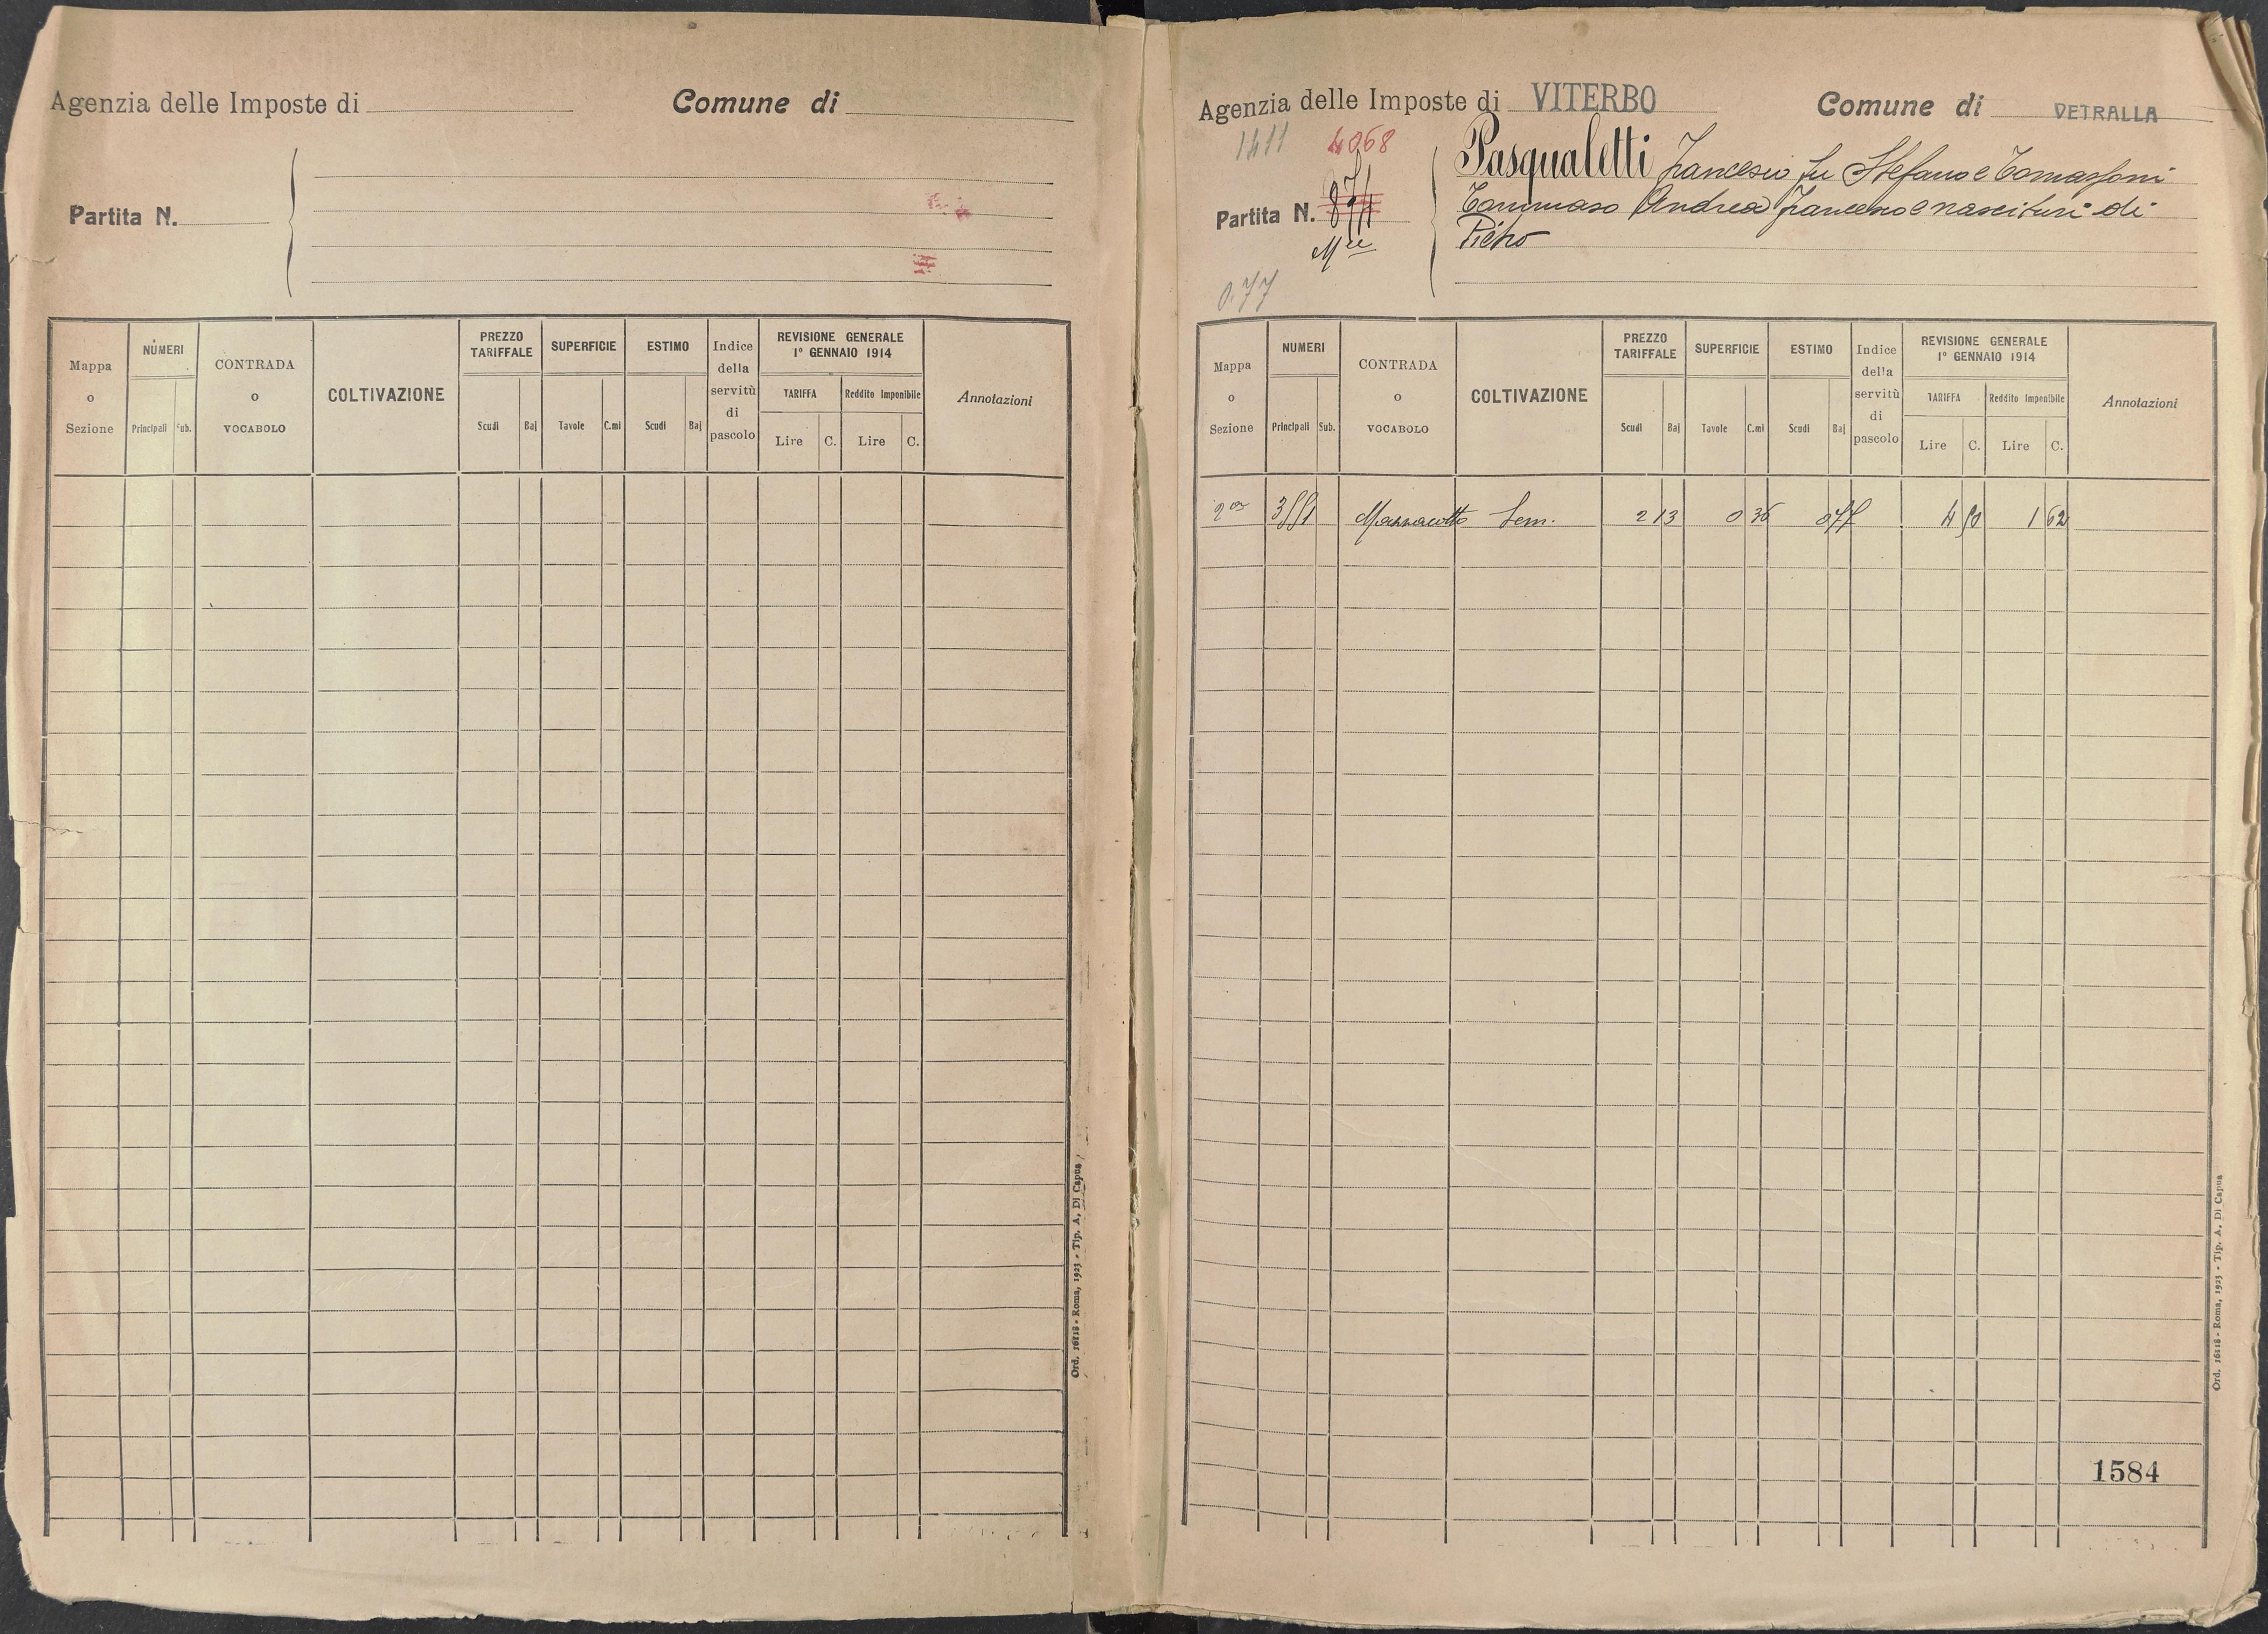 Agenzia delle Imposte di Comune di
Partita N.
Mappa o Sezione
NUMERI
Principali Sub.
CONTRADA o VOCABOLO
COLTIVAZIONE
PREZZO TARIFFALE
Scudi Baj
SUPERFICIE
Tavole C.mi
ESTIMO
Scudi Baj
Indice della servitù di pascolo
REVISIONE GENERALE
1º GENNAIO 1914
TARIFFA
Lire C.
Reddito Imponibile
Lire C.
Annotazioni
Ord. 16118 - Roma, 1923 - Tip. A. Di Capua
Agenzia delle Imposte di VITERBO Comune di VETRALLA
1411 4068
Pasqualetti Francesco fu Stefano e Tomassoni
Partita N.
Tommaso Andrea Francesco e nascituri di
Pietro
0.77
Mappa o Sezione
NUMERI
Principali Sub.
CONTRADA o VOCABOLO
COLTIVAZIONE
PREZZO TARIFFALE
Scudi Baj
SUPERFICIE
Tavole C.mi
ESTIMO
Scudi Baj
Indice della servitù di pascolo
REVISIONE GENERALE
1º GENNAIO 1914
TARIFFA
Lire C.
Reddito Imponibile
Lire C.
Annotazioni
2a Sem. 2 13 0 36 0 77 4 50 1 62
1584
Ord. 16118 - Roma, 1923 - Tip. A. Di Capua